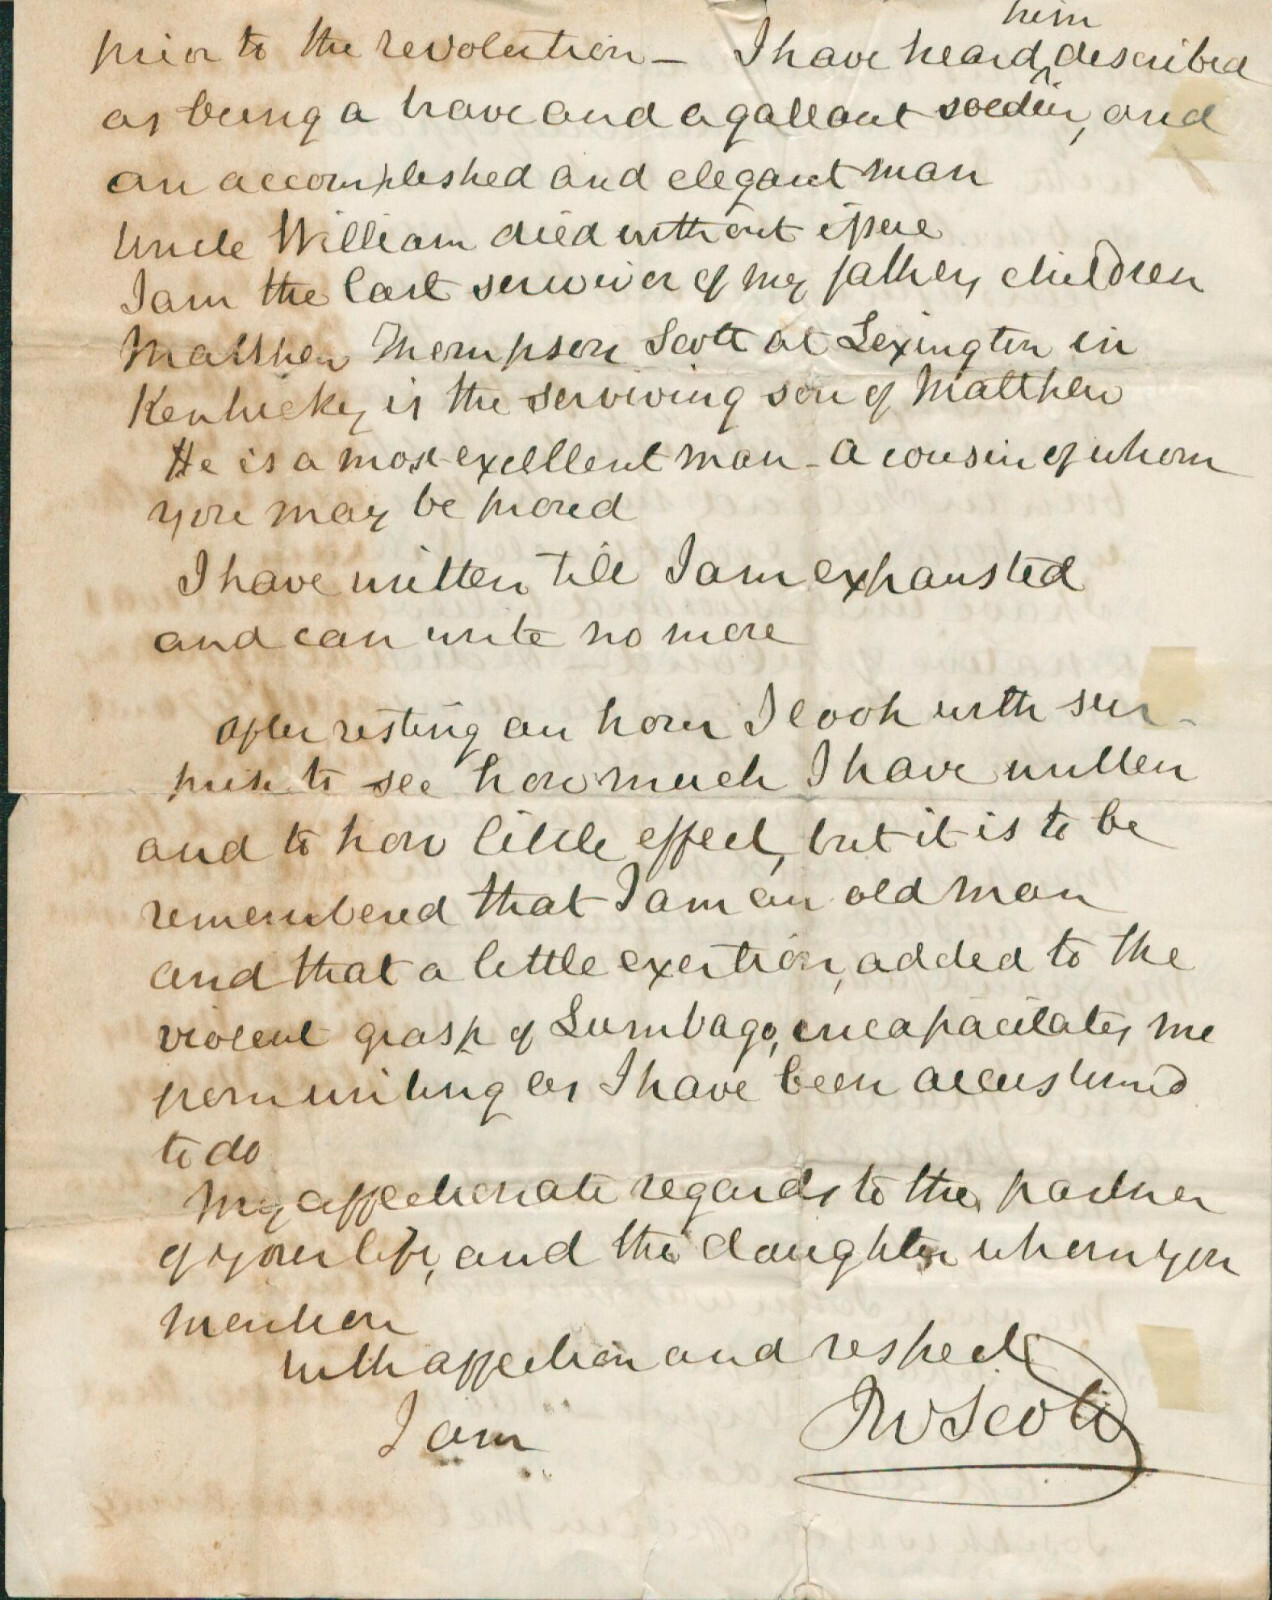 prior to the revolution — I have heard him described
as being a brave and a gallant soldier, and
an accomplished and elegant man
Uncle William died without issue
I am the last surviver of my fathers children
Matthew Thompson Scott at Lexington in
Kentucky is the serviving son of Matthew
He is a most excellent man - a cousin of whom
you may be proud
I have written till I am exhausted
and can write no more
After resting an hour I look with sur-
prise to see how much I have written
and to how little effect, but it is to be
remembered that I am an old man
and that a little exertion, added to the
violent grasp of Lumbago, incapacitates me
from writing as I have been accustomed
to do
My affectionate regards to the partner
of your life, and the daughter whom you
mention
With affection and respect
I am JW Scott